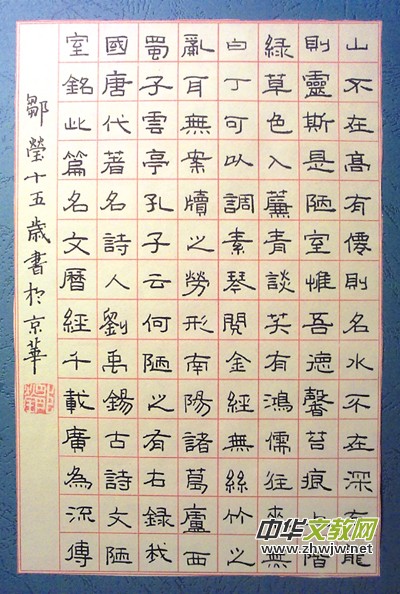 山不在高有僊則名水不在深有龍
則靈斯是陋室惟吾德馨苔痕上階
綠草色入簾青談笑有鴻儒往來無
白丁可以調素琴閱金經無絲竹之
亂耳無案牘之勞形南陽諸葛廬西
蜀子雲亭孔子云何陋之有右錄我
國唐代著名詩人劉禹錫古詩文陋
室銘此篇名文曆經千載廣為流傳
鄒瑩十五歲書於京華
中华文教网
www.zhwjw.net